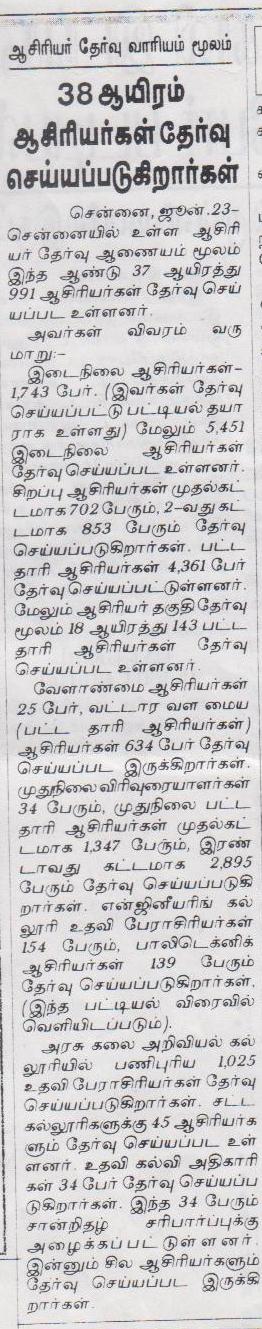 ஆசிரியர் தேர்வு வாரியம் மூலம்
38 ஆயிரம்
ஆசிரியர்கள் தேர்வு
செய்யப்படுகிறார்கள்
சென்னை, ஜூன்.23–
சென்னையில் உள்ள ஆசிரி
யர் தேர்வு ஆணையம் மூலம்
இந்த ஆண்டு 37 ஆயிரத்து
991 ஆசிரியர்கள் தேர்வு செய்
யப்பட உள்ளனர்.
அவர்கள் விவரம் வரு
மாறு:–
இடைநிலை ஆசிரியர்கள்–
1,743 பேர். (இவர்கள் தேர்வு
செய்யப்பட்டு பட்டியல் தயா
ராக உள்ளது) மேலும் 5,451
இடைநிலை ஆசிரியர்கள்
தேர்வு செய்யப்பட உள்ளனர்.
சிறப்பு ஆசிரியர்கள் முதல்கட்
டமாக 702 பேரும், 2–வது கட்
டமாக 853 பேரும் தேர்வு
செய்யப்படுகிறார்கள். பட்ட
தாரி ஆசிரியர்கள் 4,361 பேர்
தேர்வு செய்யப்பட்டுள்ளனர்.
மேலும் ஆசிரியர் தகுதி தேர்வு
மூலம் 18 ஆயிரத்து 143 பட்ட
தாரி ஆசிரியர்கள் தேர்வு
செய்யப்பட உள்ளனர்.
வேளாண்மை ஆசிரியர்கள்
25 பேர், வட்டார வள மைய
(பட்ட தாரி ஆசிரியர்கள்)
ஆசிரியர்கள் 634 பேர் தேர்வு
செய்யப்பட இருக்கிறார்கள்.
முதுநிலை விரிவுரையாளர்கள்
34 பேரும், முதுநிலை பட்ட
தாரி ஆசிரியர்கள் முதல்கட்
டமாக 1,347 பேரும், இரண்
டாவது கட்டமாக 2,895
பேரும் தேர்வு செய்யப்படுகி
றார்கள். என்ஜினீயரிங் கல்
லூரி உதவி பேராசிரியர்கள்
154 பேரும், பாலிடெக்னிக்
ஆசிரியர்கள் 139 பேரும்
தேர்வு செய்யப்படுகிறார்கள்.
(இந்த பட்டியல் விரைவில்
வெளியிடப்படும்).
அரசு கலை அறிவியல் கல்
லூரியில் பணிபுரிய 1,025
உதவி பேராசிரியர்கள் தேர்வு
செய்யப்படுகிறார்கள். சட்ட
கல்லூரிகளுக்கு 45 ஆசிரியர்க
ளும் தேர்வு செய்யப்பட உள்
ளனர். உதவி கல்வி அதிகாரி
கள் 34 பேர் தேர்வு செய்யப்ப
டுகிறார்கள். இந்த 34 பேரும்
சான்றிதழ் சரிபார்ப்புக்கு
அழைக்கப்பட்டுள்ளனர்.
இன்னும் சில ஆசிரியர்களும்
தேர்வு செய்யப்பட இருக்கி
றார்கள்.